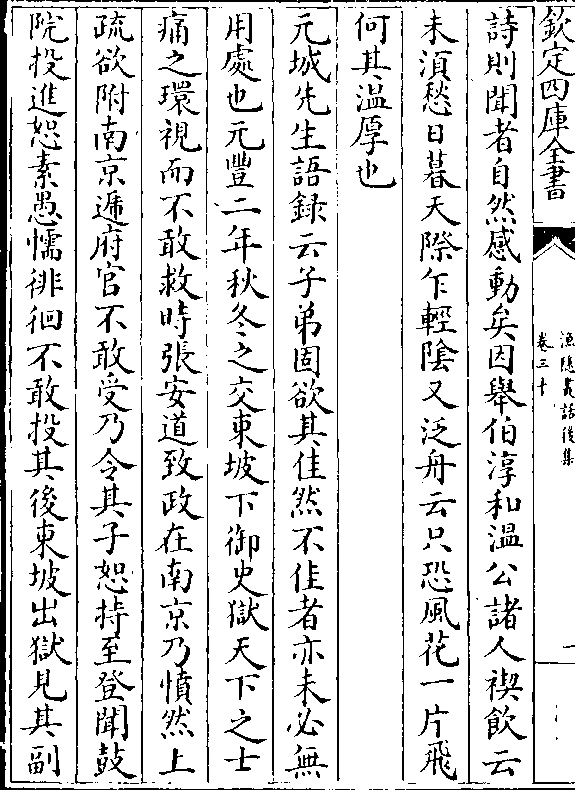 欽定四庫全書
漁隱叢話後集
卷三十
詩則聞者自然感動矣因舉伯淳和温公諸人禊飲云
未湏愁日暮天際乍輕陰又泛舟云只恐風花一片飛
何其溫厚也
元城先生語録云子弟固欲其佳然不佳者亦未必無
用處也元豐二年秋冬之交東坡下御史獄天下之士
痛之環視而不敢救時張安道致政在南京乃憤然上
疏欲附南京遞府官不敢受乃令其子恕持至登聞鼓
院投進恕素愚懦徘徊不敢投其後東坡出獄見其副